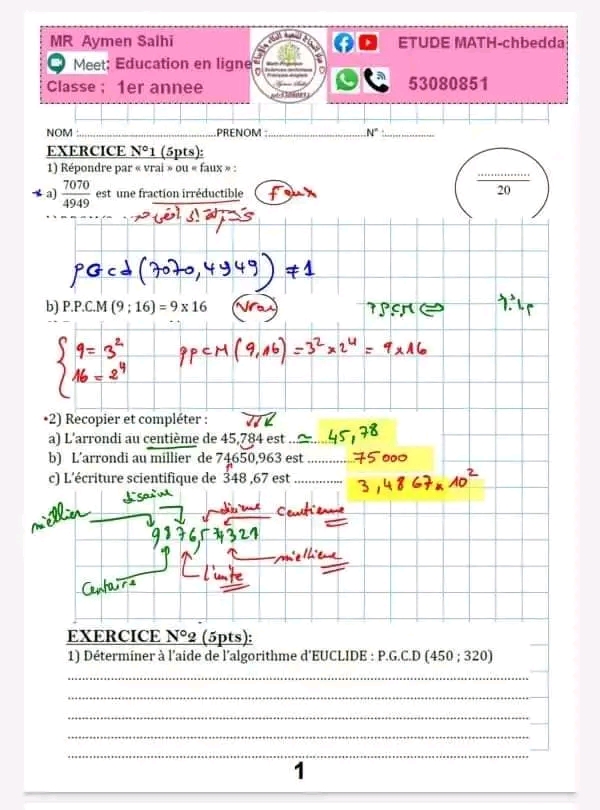 MR Aymen Salhi
Meet: Education en ligne
Classe : 1er annee
ETUDE MATH-chbedda
53080851
NOM :.................................................PRENOM :...................................N° :..................
EXERCICE N°1 (5pts):
1) Répondre par « vrai » ou « faux » :
a) 7070/4949 est une fraction irréductible faux
..............
20
PGcd(7070,4949) ≠ 1
b) P.P.C.M (9 ; 16) = 9 x 16 Vrai
P.P.C.M ⇔
9 = 3²
16 = 2⁴
PPCM(9,16) = 3² x 2⁴ = 9 x 16
•2) Recopier et compléter :
a) L'arrondi au centième de 45,784 est ..≃....45,78
b) L'arrondi au millier de 74650,963 est ............75000
c) L'écriture scientifique de 348 ,67 est .............. 3,4867 x 10²
disaine
miellier
dixime
Centieme
9876,54321
Centaire
L'unite
miellieme
EXERCICE N°2 (5pts):
1) Déterminer à l'aide de l'algorithme d'EUCLIDE : P.G.C.D (450 ; 320)
1